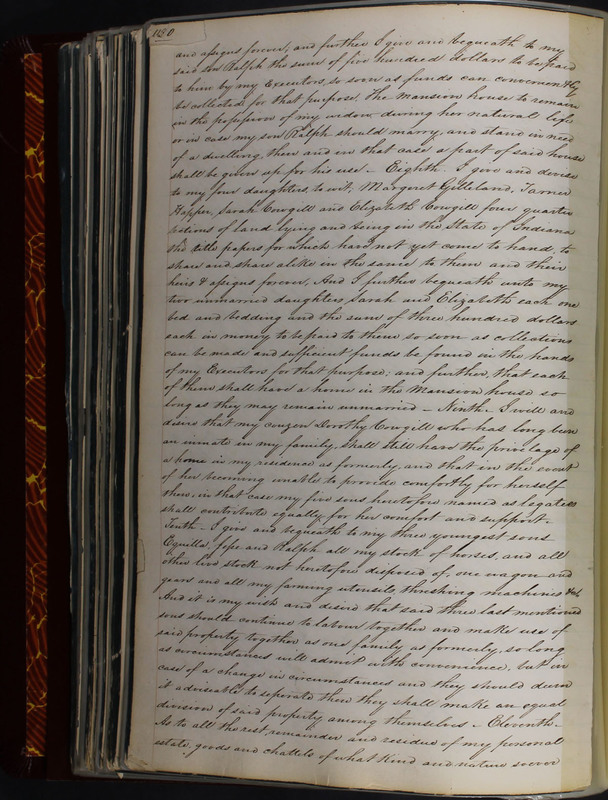 480
and assigns forever, and further I give and bequeath to my
said son Ralph the sum of five hundred dollars to be paid
to him by my Executors, so soon as funds can conveniently
be collected for that purpose. The mansion house to remain
in the possession of my widow during her natural life
or in case my son Ralph should marry, and stand in need
of a dwelling then and in that case a part of said house
shall be given up for his use – Eighth. I give and devise
to my four daughters, to wit, Margeret Gilleland,
Happer, Sarah Cowgill and Elizabeth Cowgill four quarter
sections of land lying and being in the State of Indiana
the title papers for which have not yet come to hand, to
share and share alike in the same to them and their
heirs & assigns forever, And I further bequeath unto my
two unmarried daughters Sarah and Elizabeth each one
bed and bedding and the sum of three hundred dollars
each in money to be paid to them so soon as collections
can be made and sufficient funds be found in the hands
of my Executors for that purpose; and further, that each
of them shall have a home in the Mansion house so
long as they may remain unmarried – Ninth – I will and
desire that my couzen Dorothy Cowgill who has long been
an inmate in my family, shall still have the privelage of
a home in my residence as formerly, and that in the event
of her becoming unable to provide comfortly for herself
then, in that case my five sons heretofore named as legatees
shall contribute equally for her comfort and support –
Tenth – I give and bequeath to my three youngest sons
Equilla, Jesse and Ralph all my stock of horses, and all
other live stock not heretofore disposed of, one wagon and
gears and all my faming utensils threshing machines &c
And it is my wish and desire that said three last mentioned
sons should continue to labour together and make use of
said property together as one family as formerly, so long
as circumstances will admit with convenience, but in
case of a change in circumstances and they should deem
it adviseable to seperate then they shall make an equal
division of said property among themselves – Eleventh –
As to all the rest remainder and residue of my personal
estate, goods and chattels of what kind and nature soever